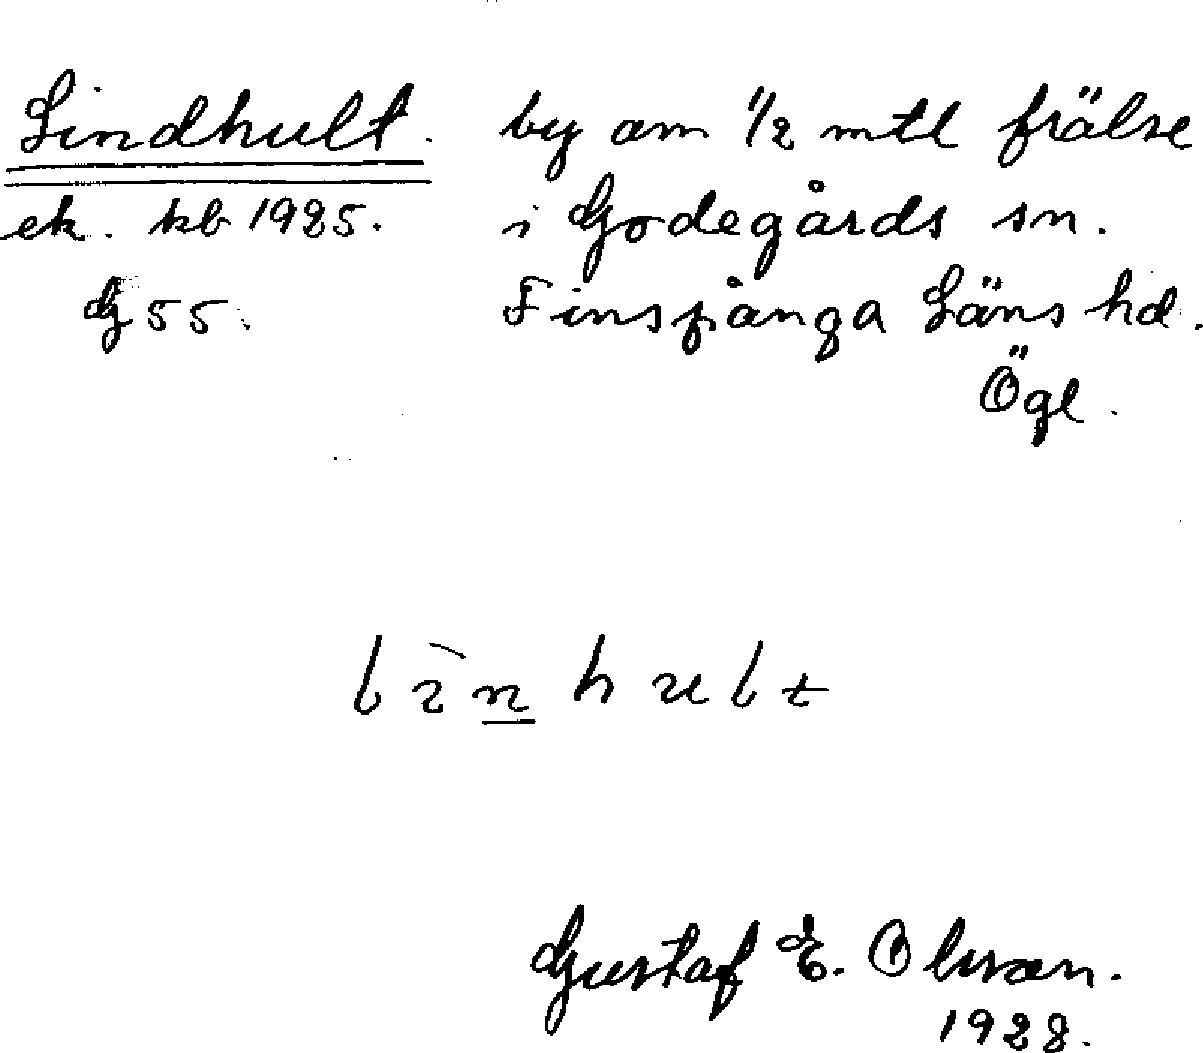 Lindhult. by om 1/2 mtl frälse
ek. kb 1925. i Godegårds sn.
G 55. Finspånga Läns hd.
Ögl.
Gustaf E. Olsson.
1928.